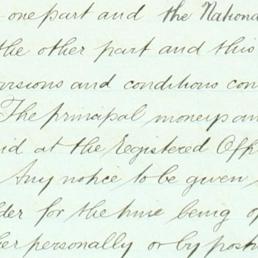 one part and the Nationa
the other part and this
visions and conditions con
The principal moneys an
id at the Registered Offi
Any notice to be given
lder for the time being of
her personally or by post